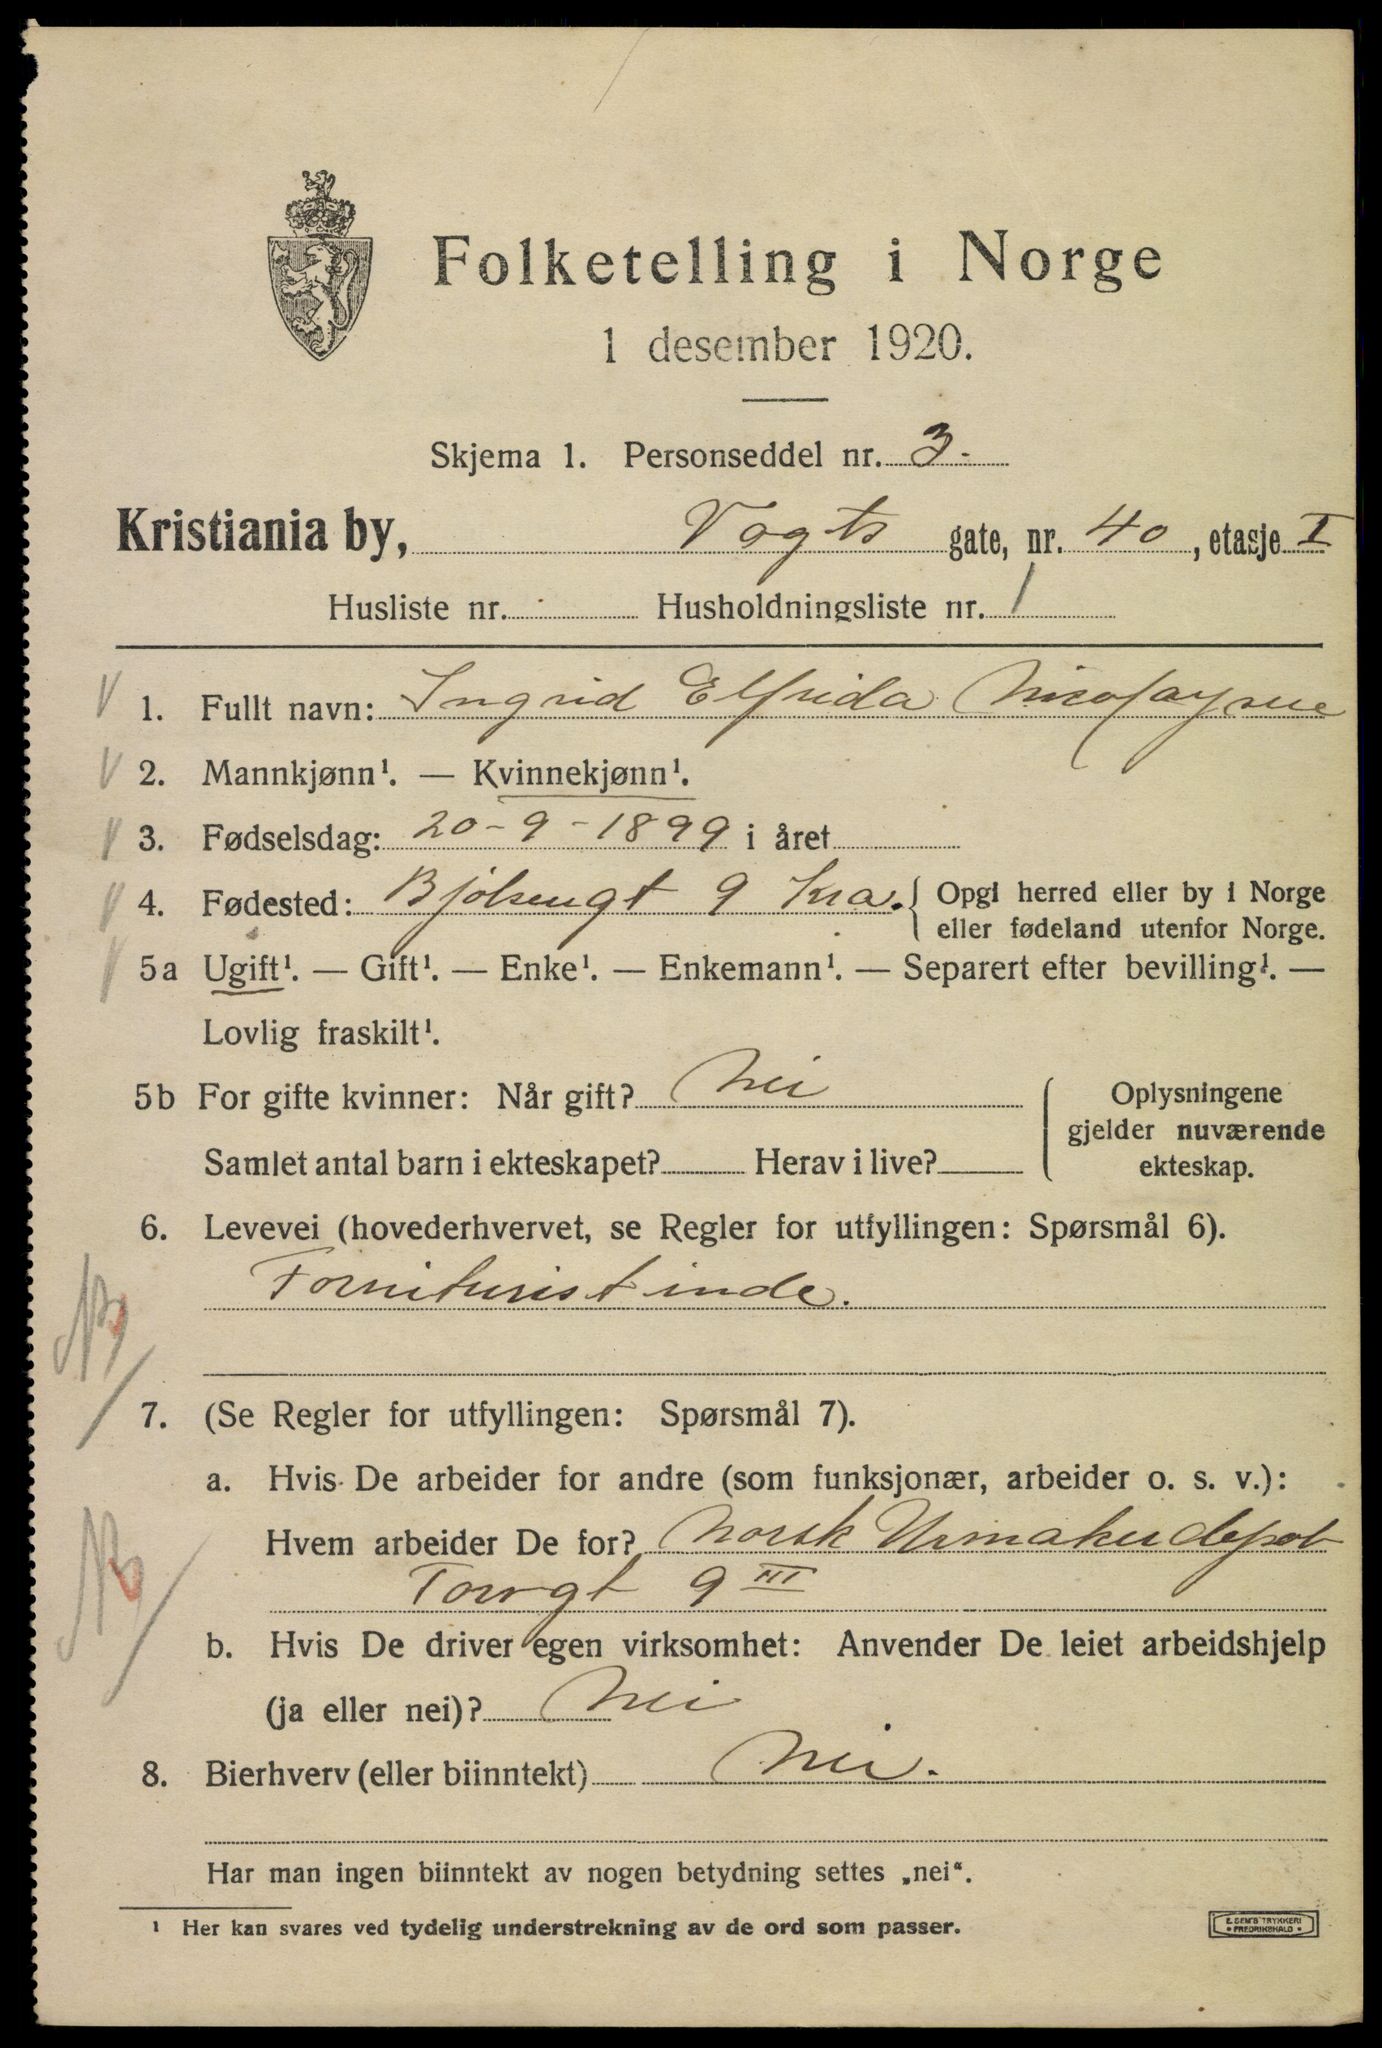 Folketelling i Norge
1 desember 1920.
Skjema 1. Personseddel nr. 3.
Kristiania by, Vogts gate, nr. 40, etasje I
Husliste nr. Husholdningsliste nr. 1
V 1. Fullt navn: Ingrid Elfrida
V 2. Mannkjønn¹. — Kvinnekjønn¹.
V 3. Fødselsdag: 20-9-1899 i året
V 4. Fødested: Bjølsengt 9 Kra. { Opgi herred eller by i Norge
eller fødeland utenfor Norge.
V 5a Ugift¹. — Gift¹. — Enke¹. — Enkemann¹. — Separert efter bevilling¹. —
Lovlig fraskilt¹.
5b For gifte kvinner: Når gift? Nei
Samlet antal barn i ekteskapet? Herav i live?
Oplysningene
gjelder nuværende
ekteskap.
6. Levevei (hovederhvervet, se Regler for utfyllingen: Spørsmål 6).
Fornituristinde.
7. (Se Regler for utfyllingen: Spørsmål 7).
a. Hvis De arbeider for andre (som funksjonær, arbeider o. s. v.):
Hvem arbeider De for? Norsk Urmakerdepot
Torvgt 9 III
b. Hvis De driver egen virksomhet: Anvender De leiet arbeidshjelp
(ja eller nei)? Nei
8. Bierhverv (eller biinntekt) Nei.
Har man ingen biinntekt av nogen betydning settes „nei“.
¹ Her kan svares ved tydelig understrekning av de ord som passer.
E. SEM'S TRYKKERI
• FREDRIKSHALD •